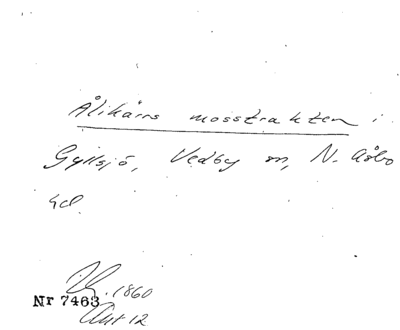 Ålikärrs mosstrakten i
Gyllsjö, Vedby sn, N. Åsbo
hd.
1860
Nr 7463
Akt 12